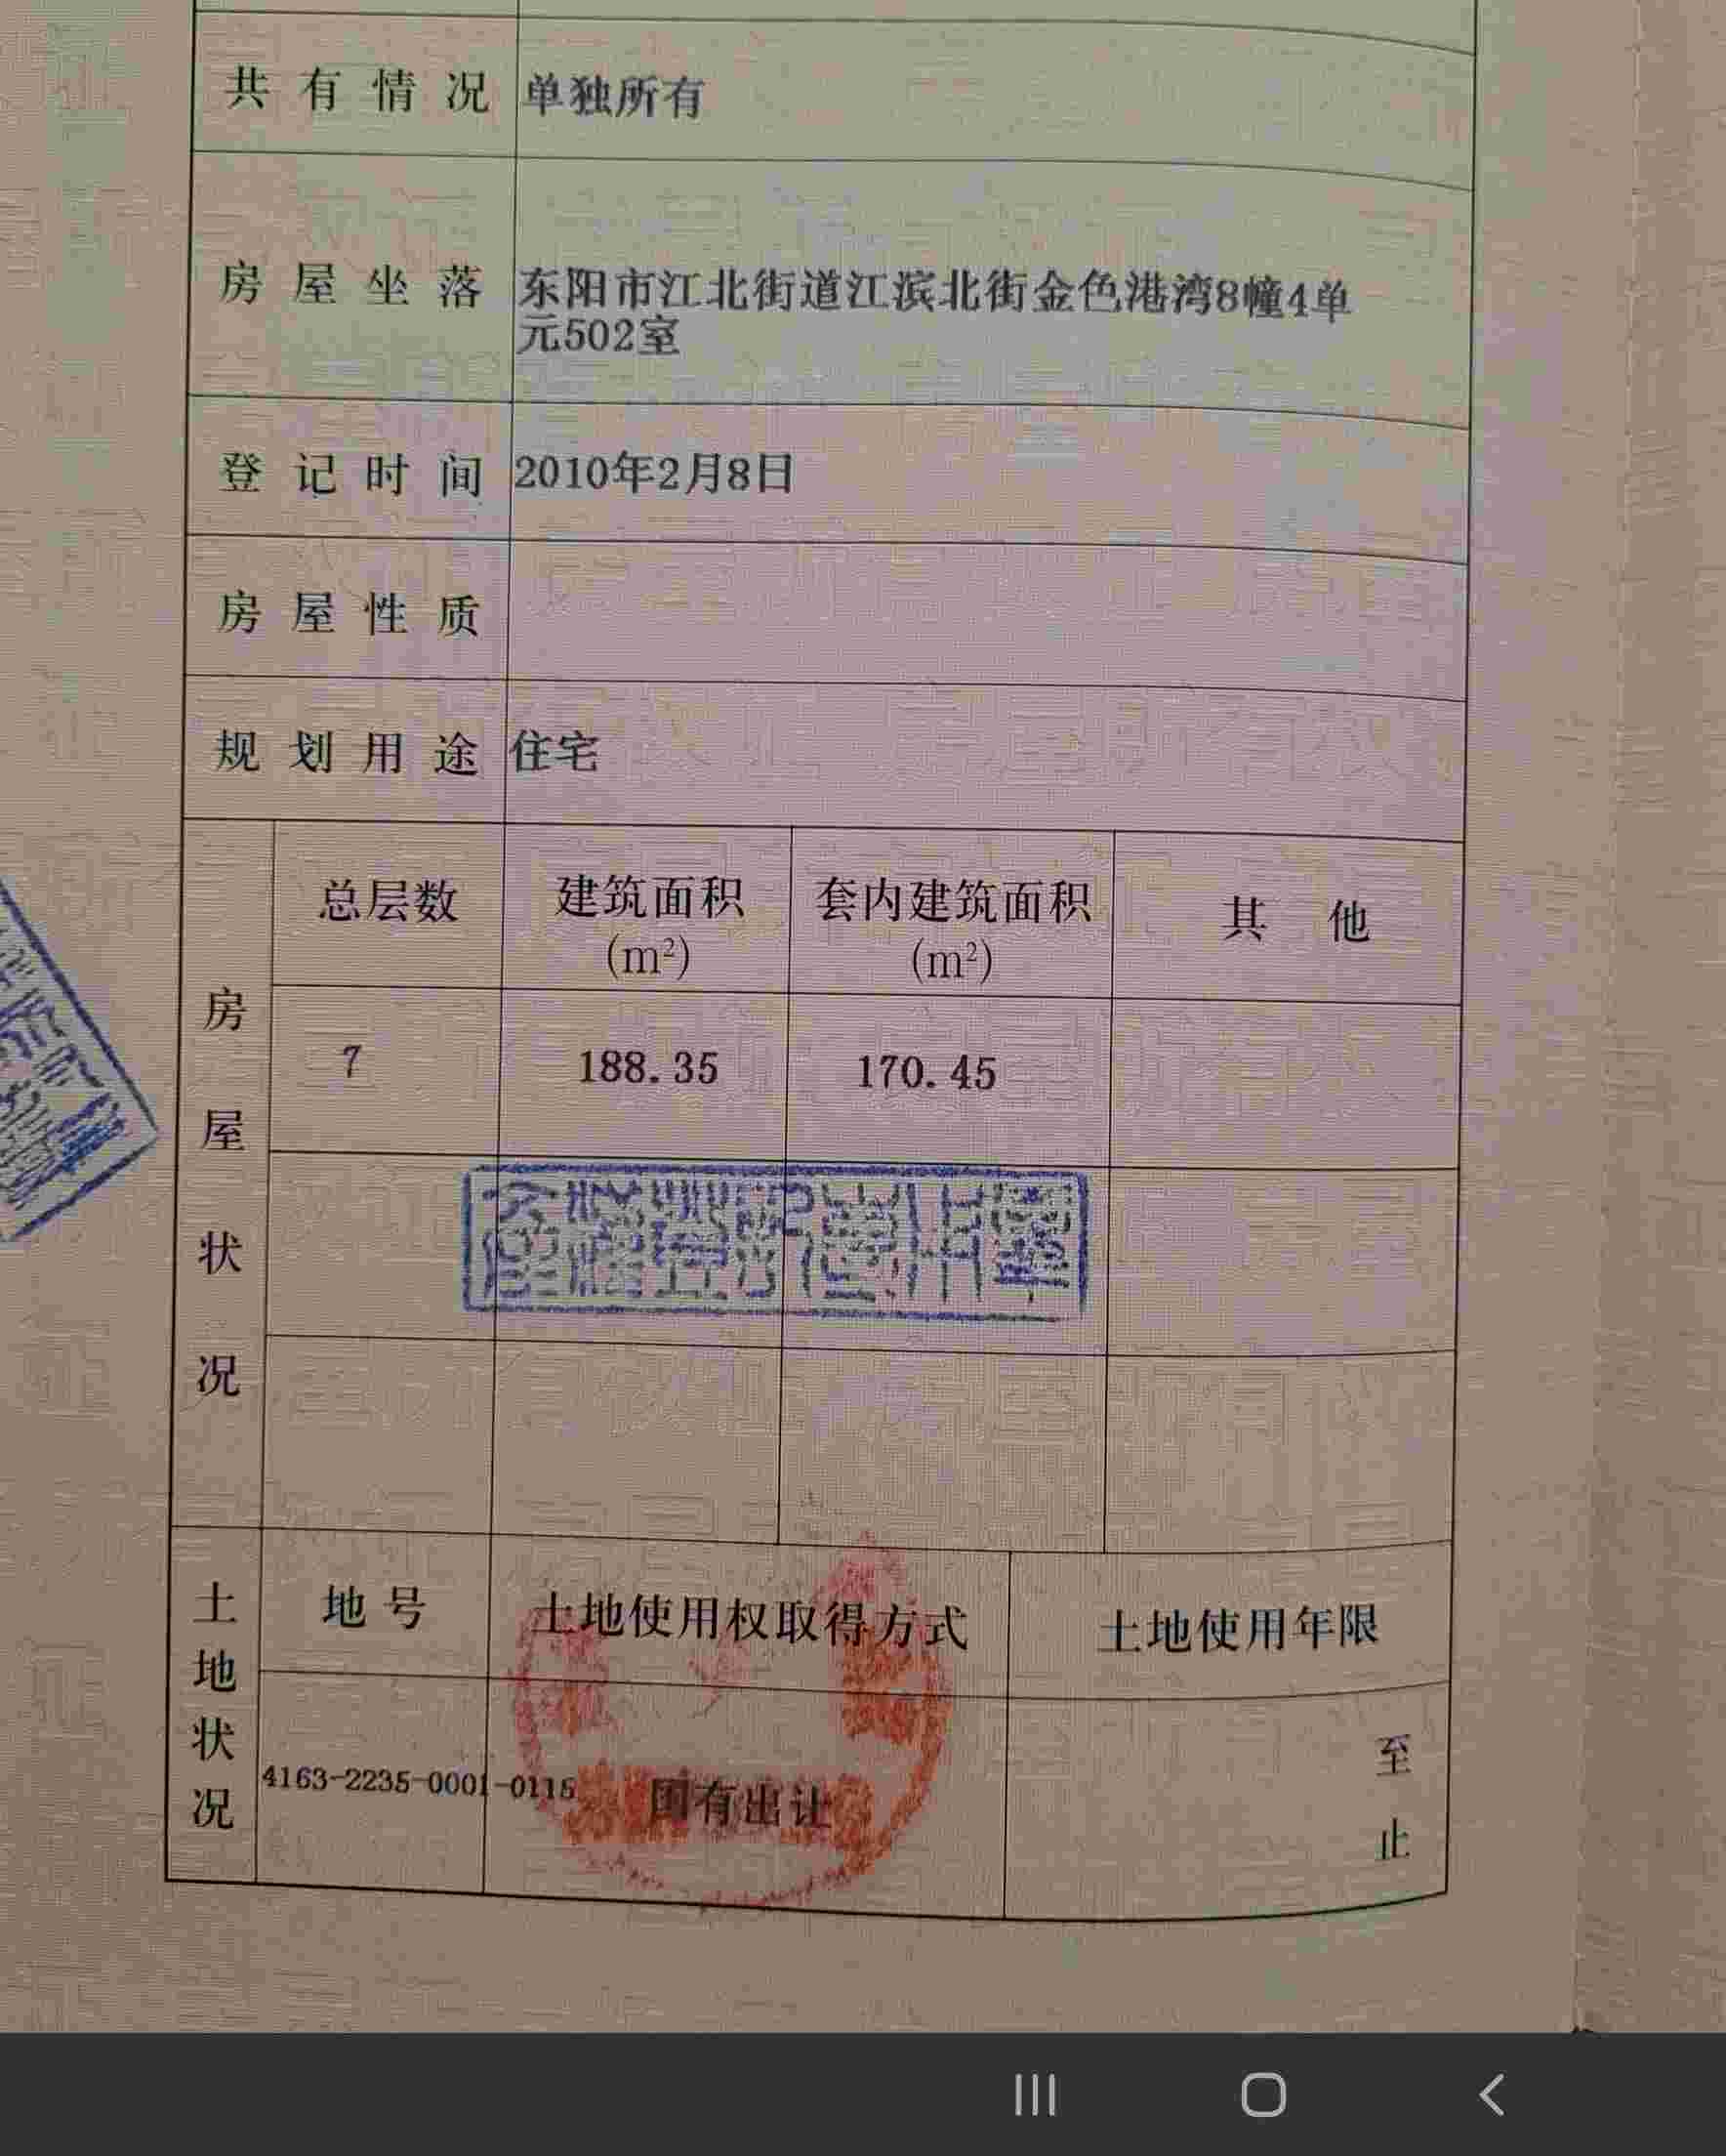 共有情况 单独所有
房屋坐落 东阳市江北街道江滨北街金色港湾8幢4单
元502室
登记时间 2010年2月8日
房屋性质
规划用途 住宅
房屋状况
总层数 建筑面积 套内建筑面积 其他
(m²) (m²)
7 188.35 170.45
土地状况
地号 土地使用权取得方式 土地使用年限
至
4163-2235-0001-0115 国有出让
止